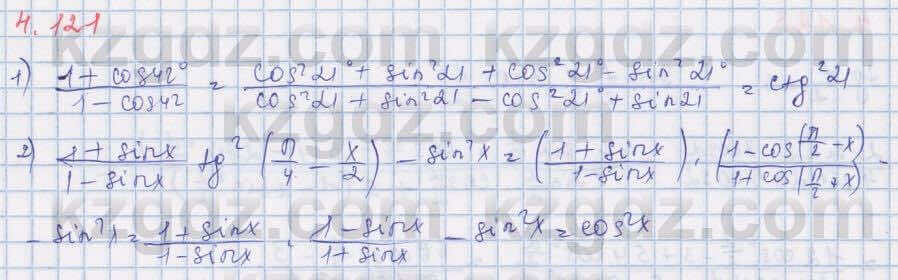 4.121
1) (1 + cos42°)/(1 - cos42) = (cos²21° + sin²21 + cos²21° - sin²21°)/(cos²21 + sin²21 - cos²21° + sin21) = ctg²21
2) (1 + sinx)/(1 - sinx) tg²(π/4 - x/2) - sin²x = ((1 + sinx)/(1 - sinx)) · (1 - cos(π/2 - x))/(1 + cos(π/2 + x)) -
- sin²x = (1 + sinx)/(1 - sinx) · (1 - sinx)/(1 + sinx) - sin²x = cos²x
kzgdz.com